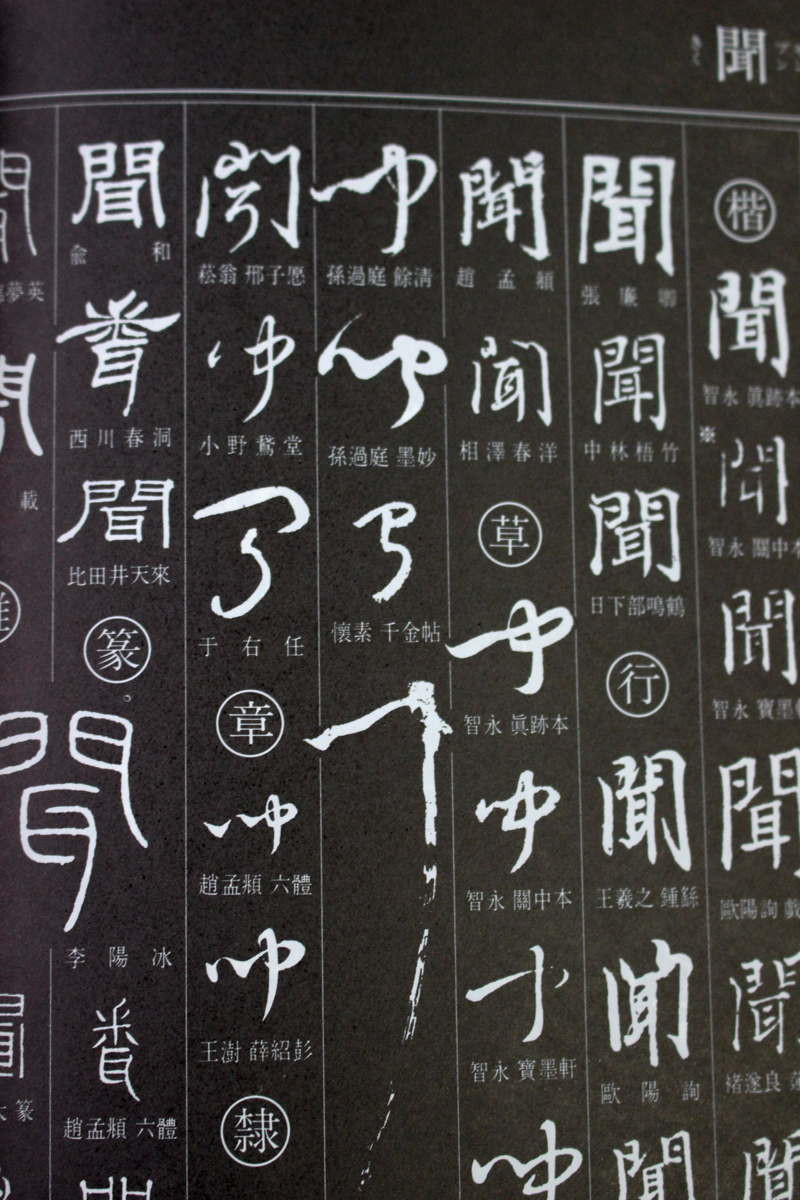 聞
きく
楷
聞
智永 眞跡本
※
聞
智永 關中本
聞
智永 寶墨軒
聞
歐陽詢
聞
褚遂良
聞
聞
張廉卿
聞
中林梧竹
聞
日下部鳴鶴
行
聞
王羲之
聞
歐陽詢
聞
聞
趙孟頫
聞
相澤春洋
草
聞
智永 眞跡本
聞
智永 關中本
聞
智永 寶墨軒
聞
聞
孫過庭 餘清
聞
孫過庭 墨妙
聞
懷素 千金帖
聞
聞
菘翁 邢子愿
聞
小野鵞堂
聞
于右任
章
聞
趙孟頫 六體
聞
王澍 薛紹彭
隸
聞
兪和
西川春洞
聞
比田井天來
篆
聞
李陽冰
趙孟頫 六體
夢英
載
篆